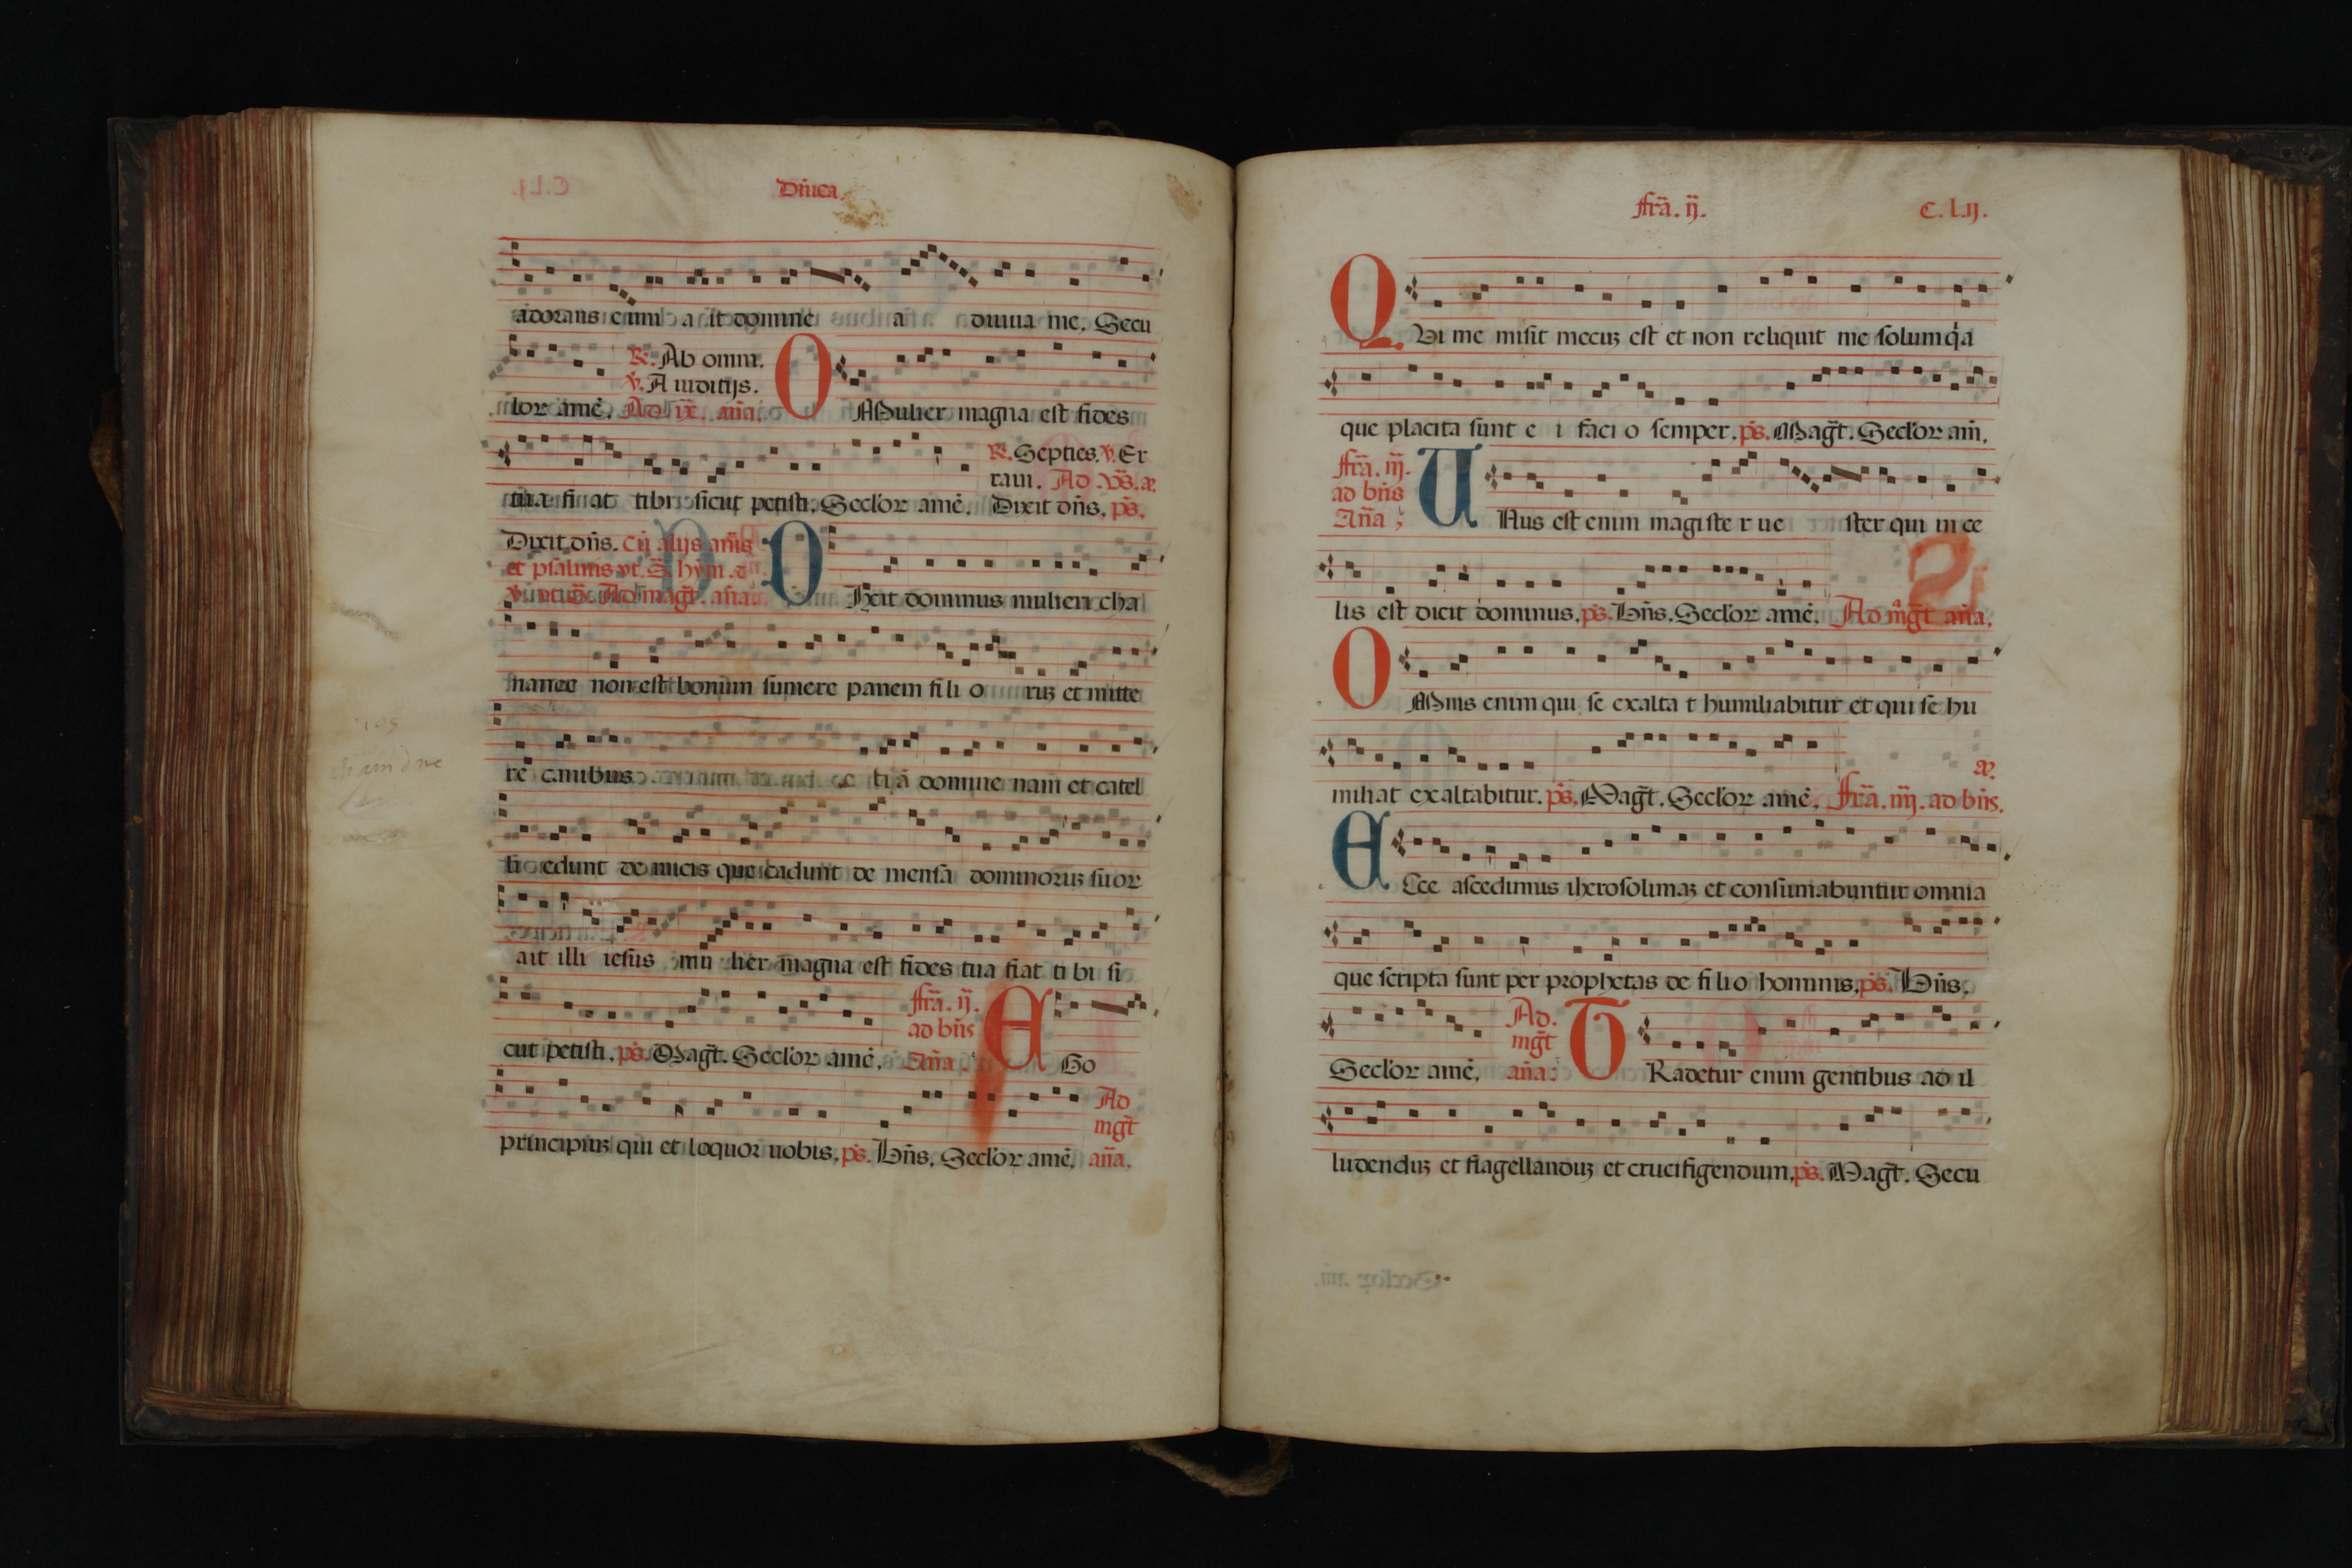 Dnica.
adorans eum a it domine a diuua me. Secu
lor amē. R̃. Ab omni.
v̄. A iuditijs.
Ad vē. aña. O Mulier magna est fides
tua fi at tibi sicut petisti. Seclor amē. R̃. Septies. v̄. Er
raui. Ad vs̄. æ.
Dixit dn̄s. ps̄.
Dixit dn̄s. cū alijs añis
et psalmis vt. S̄. hȳm. 
Ad magt̄. aña. D Ixit dominus mulieri cha
nanee non est bonum sumere panem fi li o ruz et mitte
re canibus e ti ā domine nam et catel
li edunt de micis que cadunt de mensa dominoruz suor
ait illi iesus mu lier magna est fides tua fiat ti bi si
cut petisti. ps̄. Magt̄. Seclor amē. fr̄a. ij.
ad bn̄s
Aña. E Go
principiuz qui et loquor uobis. ps̄. Bn̄s. Seclor amē. Ad
mgt̄
aña.
fr̄a. ij. C. l.ij.
Q Vi me misit mecuz est et non reliquit me solum q̄a
que placita sunt e i faci o semper. ps̄. Magt̄. Seclor am̄.
fr̄a. iij.
ad bn̄s
Aña. U Nus est enim magiste r ue ster qui in ce
lis est dicit dominus. ps̄. Bn̄s. Seclor amē. Ad mgt̄ aña.
O Mnis enim qui se exalta t humiliabitur et qui se hu
miliat exaltabitur. ps̄. Magt̄. Seclor amē. fr̄a. iiij. ad bn̄s. æ.
E Cce ascedimus iherosolimaz et consumabuntur omnia
que scripta sunt per prophetas de fi li o hominis. ps̄. Bn̄s.
Seclor amē. Ad.
mgt̄
aña: T Radetur enim gentibus ad il
ludenduz et flagellanduz et crucifigendum. ps̄. Magt̄. Secu